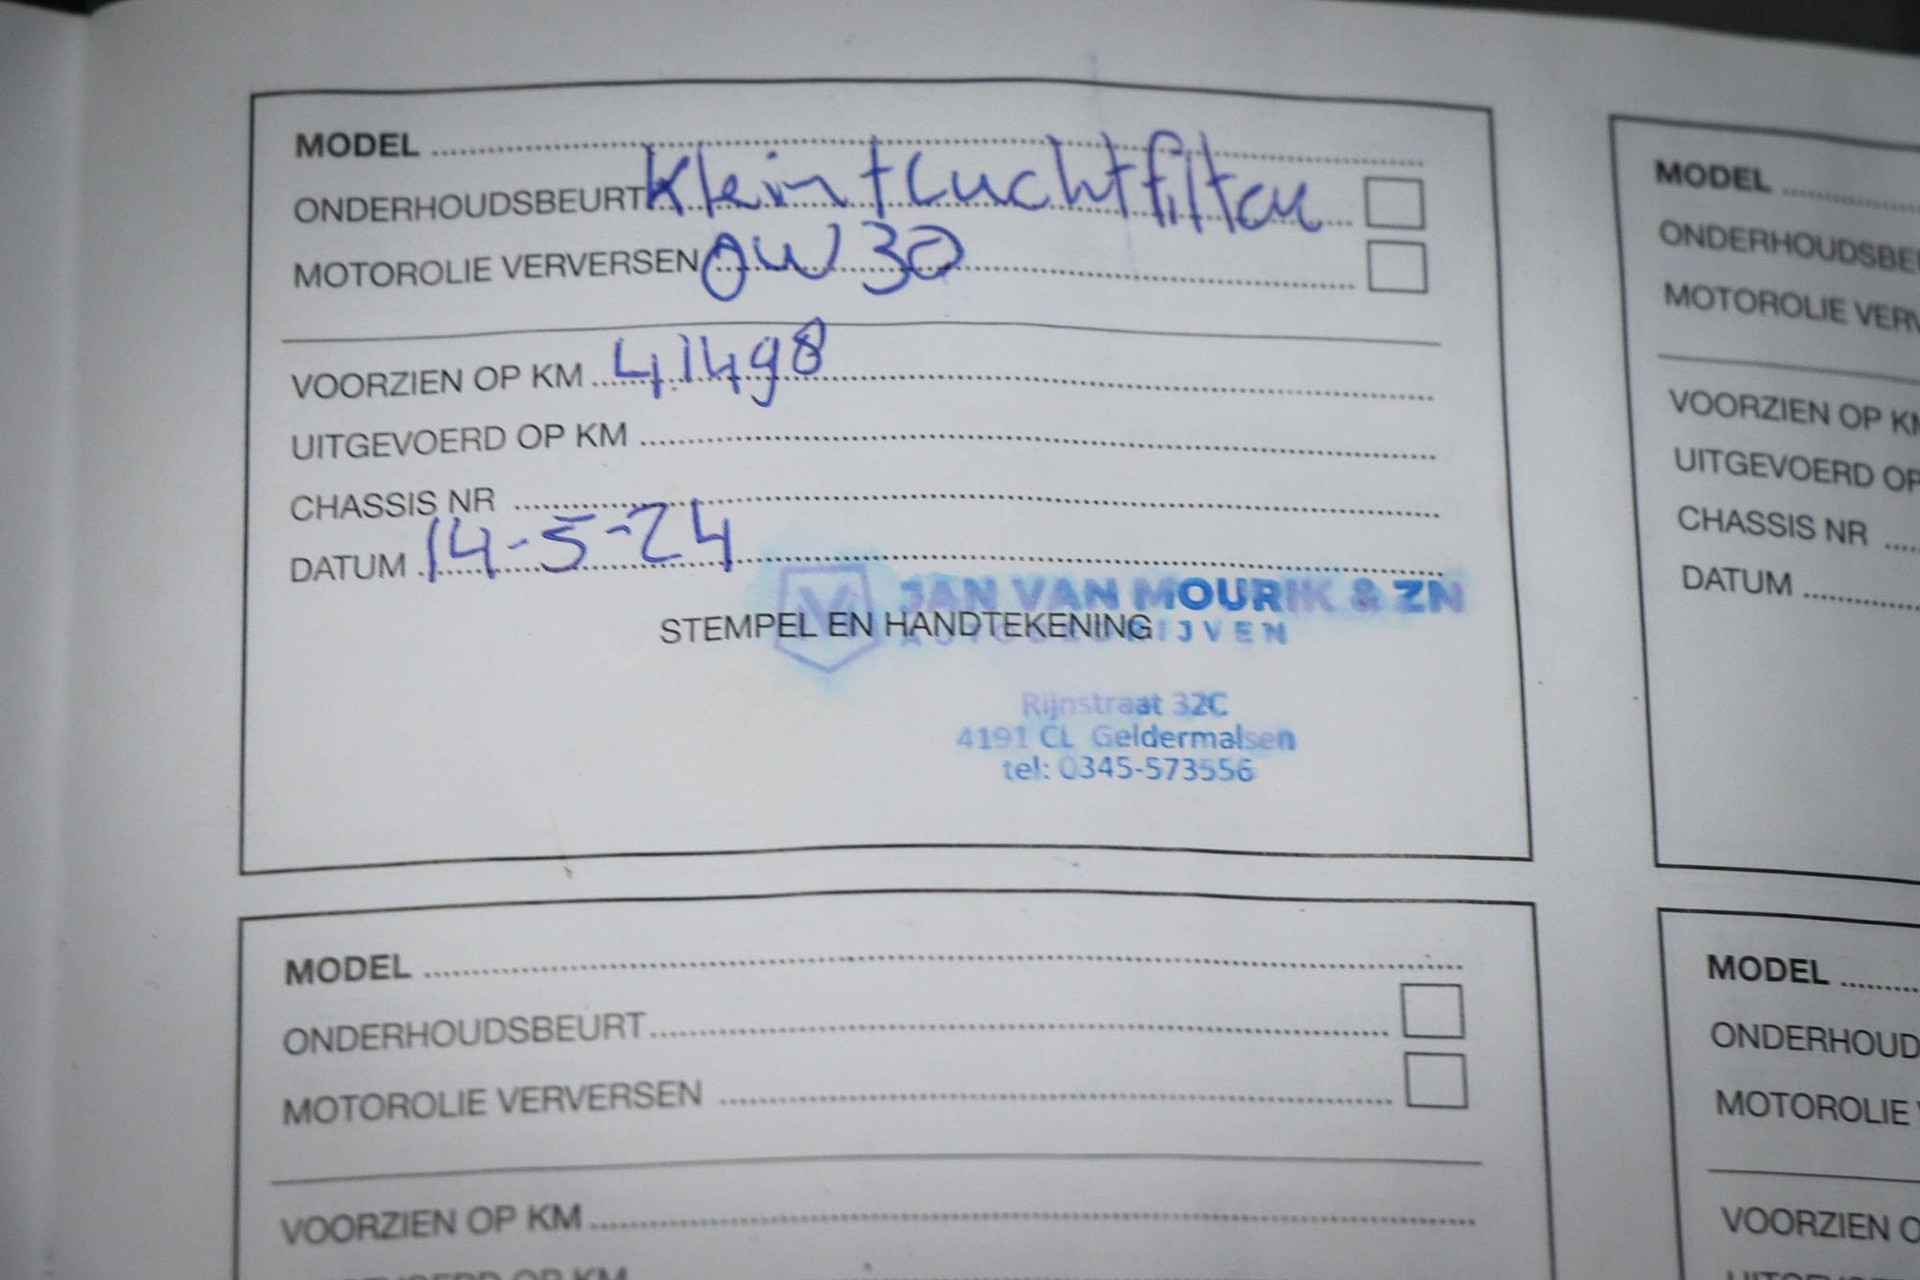 MODEL
ONDERHOUDSBEURT Klein + Luchtfilter
MOTOROLIE VERVERSEN 0W30
VOORZIEN OP KM 41498
UITGEVOERD OP KM
CHASSIS NR
DATUM 14-5-24
JAN VAN MOURIK & ZN
STEMPEL EN HANDTEKENING
Rijnstraat 32C
4191 CL Geldermalsen
tel: 0345-573556
MODEL
ONDERHOUDSBEURT
MOTOROLIE VERVERSEN
VOORZIEN OP KM
MODEL
ONDERHOUDSBE
MOTOROLIE VERV
VOORZIEN OP KM
UITGEVOERD OP
CHASSIS NR
DATUM
MODEL
ONDERHOUD
MOTOROLIE V
VOORZIEN O